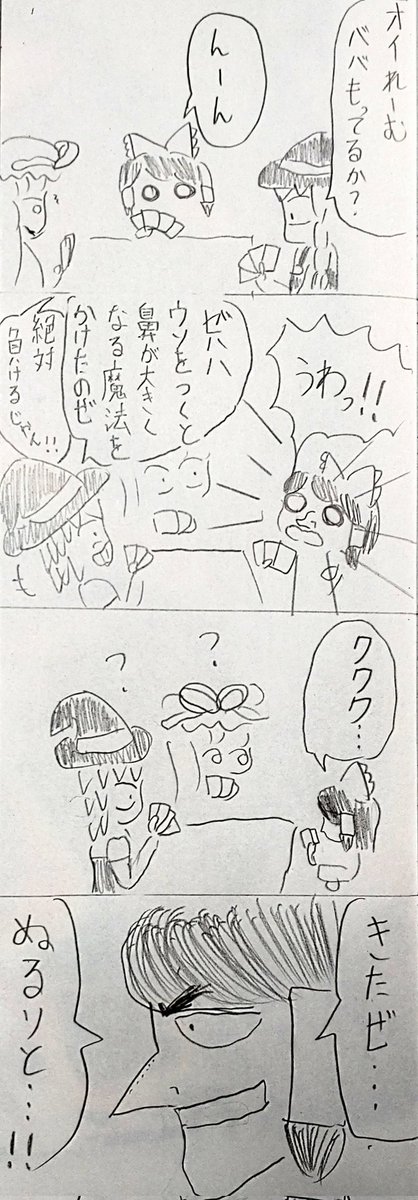 オイれーむ
ババもってるか?
んーん
うわっ!!
ゼハハ
ウソをつくと
鼻が大きく
なる魔法を
かけたのぜ
絶対
負けるじゃん!!
ククク…
?
?
きたぜ…
ぬるりと…!!